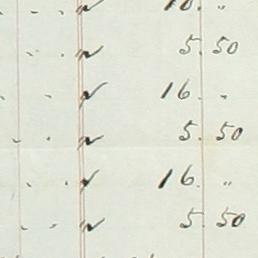 " " " ✓ 16. "
" " " ✓ 5. 50
" " " ✓ 16. "
" " " ✓ 5. 50
" " " ✓ 16. "
" " " ✓ 5. 50